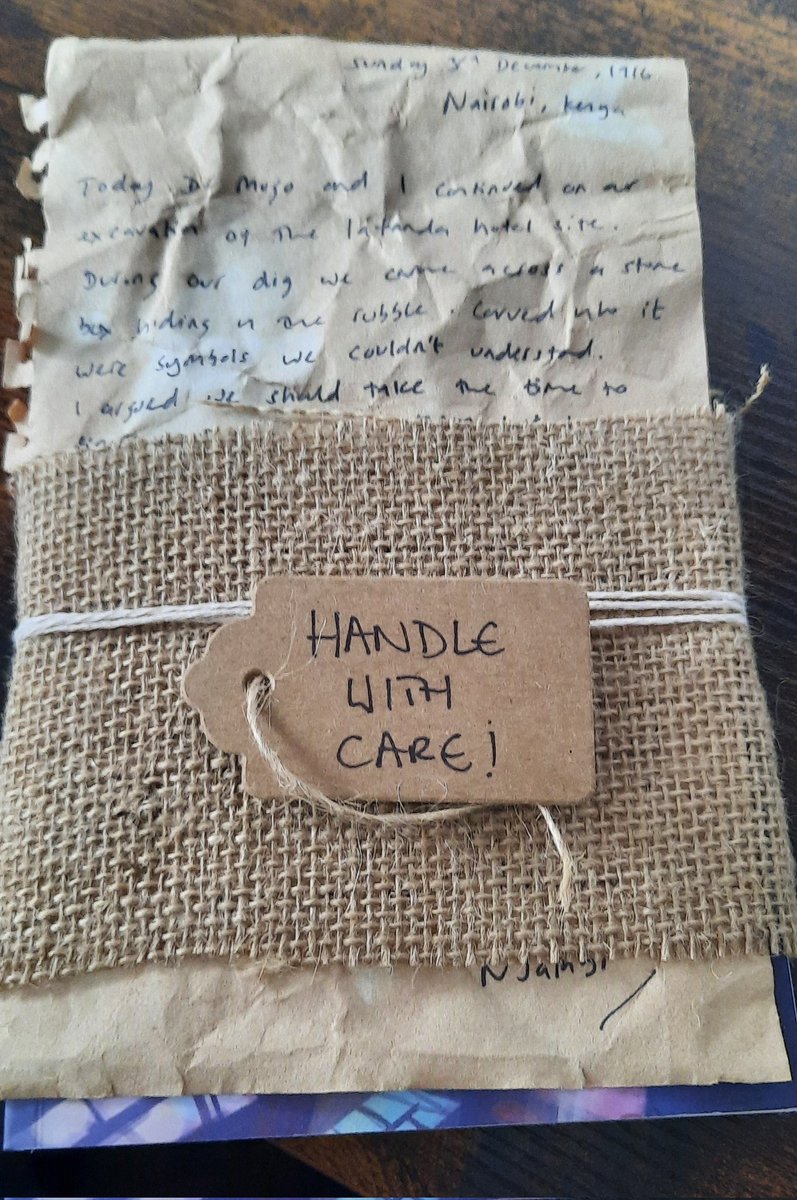 Sunday 3rd December, 1916
Nairobi, Kenya
Today Dr Mugo and I continued on our
excavation of the Lafanda hotel site.
During our dig we came across a stone
box hiding in the rubble. Carved into it
were symbols we couldn't understand.
I argued we should take the time to
HANDLE
WITH
CARE!